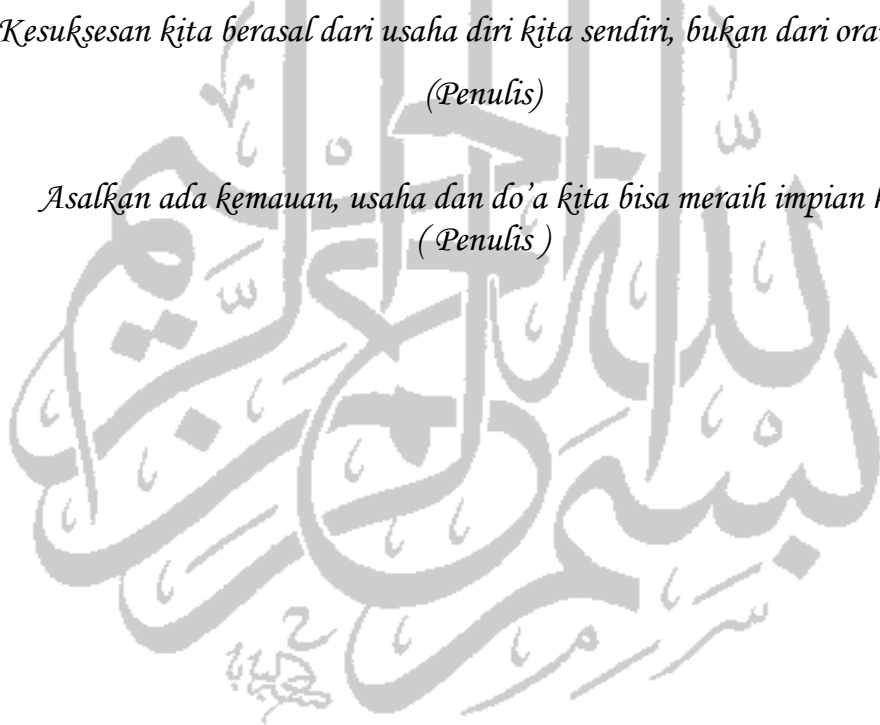 Kesuksesan kita berasal dari usaha diri kita sendiri, bukan dari
(Penulis)
Asalkan ada kemauan, usaha dan do’a kita bisa meraih impian
( Penulis )
بسم الله الرحمن الرحيم